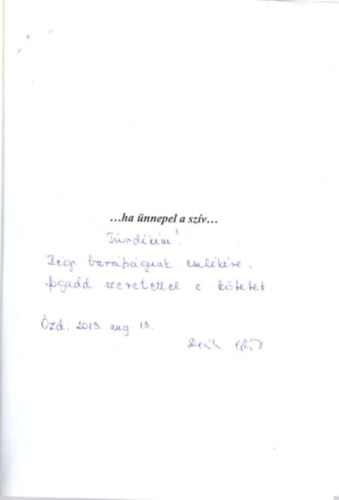 …ha ünnepel a szív…
Tündikém!
Régi barátságunk emlékére,
fogadd szeretettel e kötetet
Ózd, 2013. aug 13.